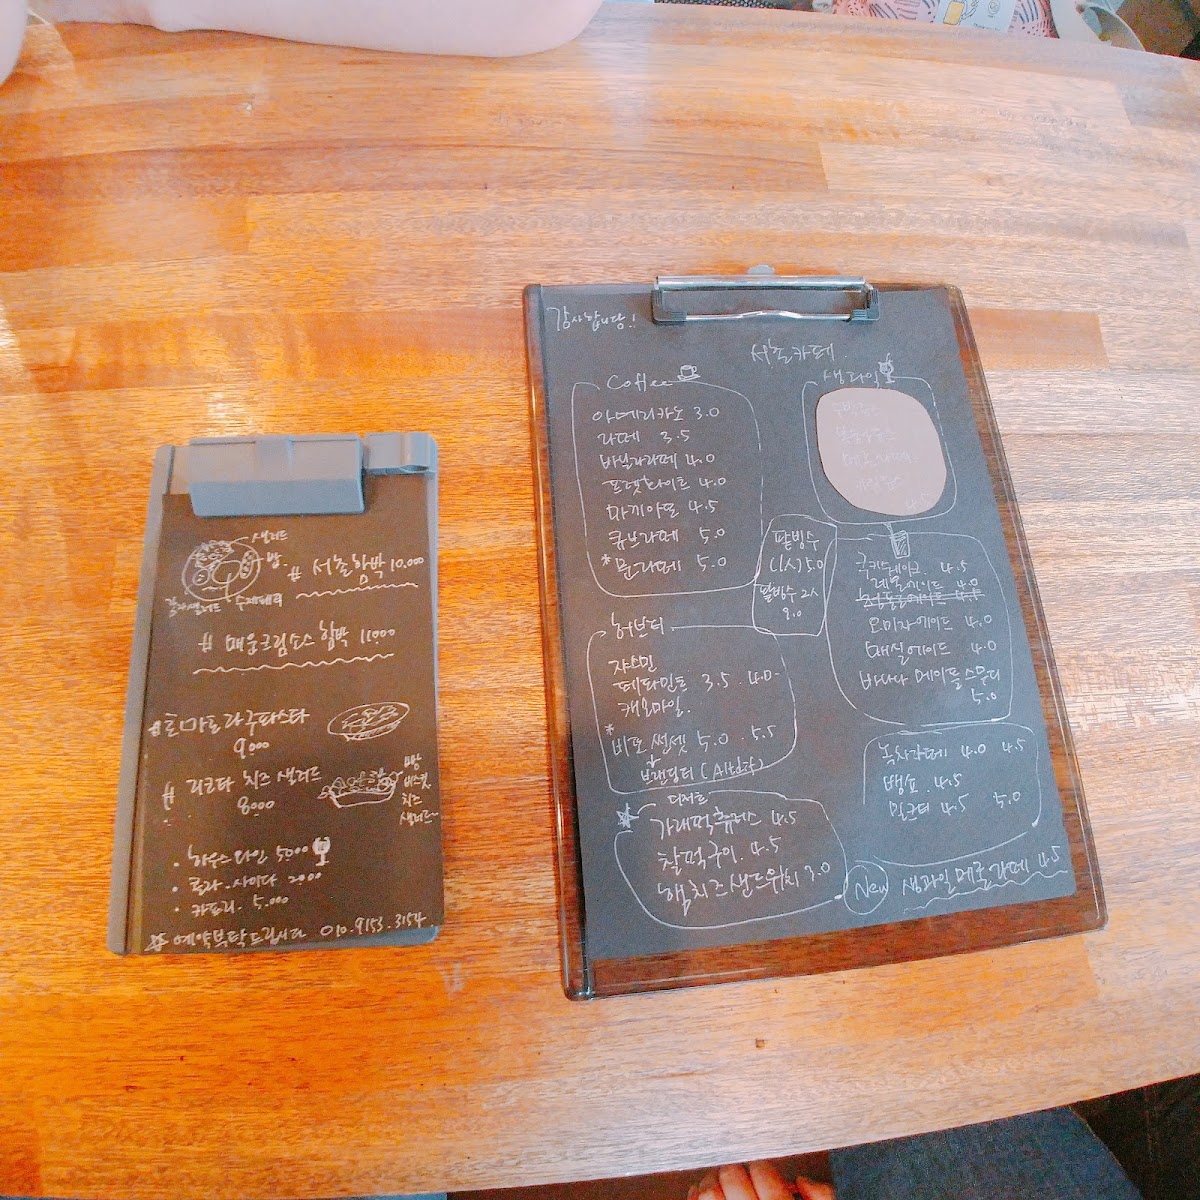 샐러드
밥
# 서촌함박 10.000
수제패티
# 매운크림소스 함박 11.000
# 토마토라구파스타
9.000
# 리코타 치즈 샐러드
8.000
빵
비스킷
치즈
샐러드
• 하우스와인 5.000
• 콜라.사이다 2000
• 카프리. 5.000
# 예약부탁드립니다 010.9153.3154
감사합니다!
서촌카페.
Coffee
아메리카노 3.0
라떼 3.5
바닐라라떼 4.0
프렛화이트 4.0
마끼아또 4.5
큐브라떼 5.0
*문라떼 5.0
생과일
4.5
팥빙수
(1人)5.0
팥빙수 2人
9.0
4.5
레몬에이드 4.0
오미자에이드 4.0
매실에이드 4.0
바나나 메이플스무디
5.0
허브티
쟈스민
페파민트 3.5 . 4.0
캐모마일.
* 비포 썬셋 5.0 . 5.5
브랜딩티
녹차라떼 4.0 4.5
뱅쇼. 4.5
밀크티 4.5 5.0
디저트
가래떡츄러스 4.5
찰떡구이. 4.5
햄치즈샌드위치 3.0
New 생과일메론라떼 4.5